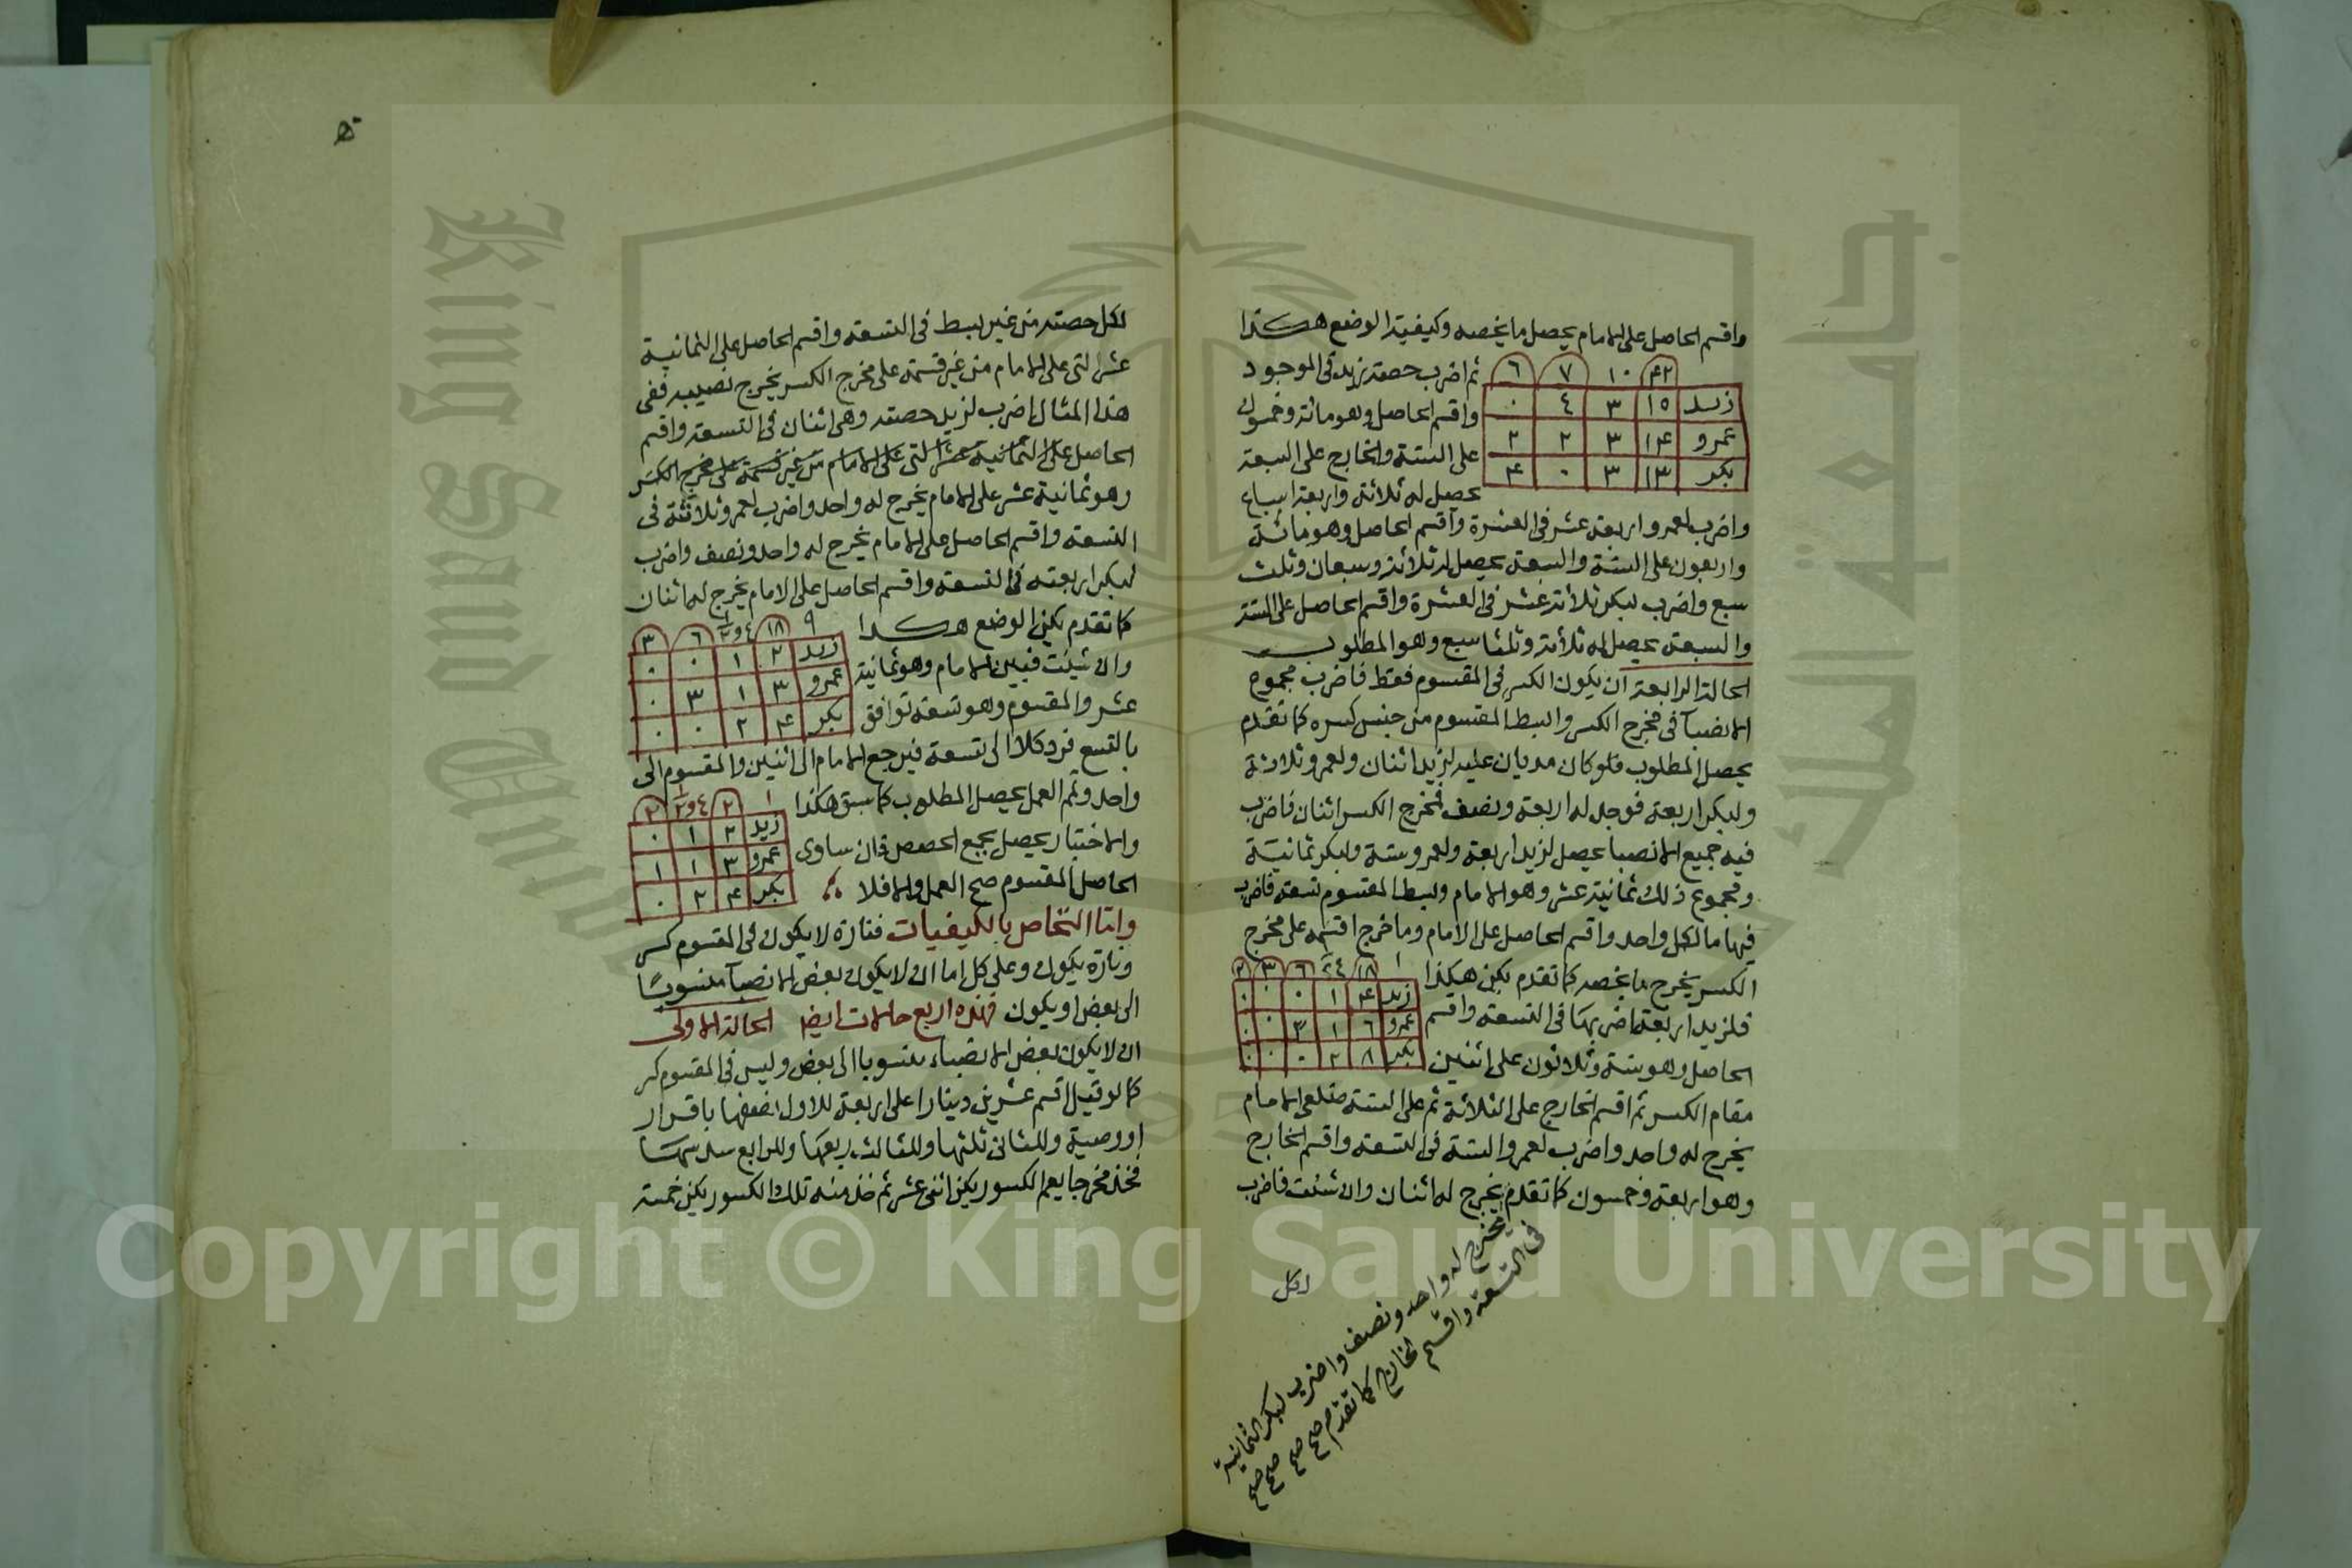 واقسم الحاصل على الامام يحصل ما يخصه وكيفية الوضع هكذا
ثم اضرب حصة زيد في الموجود
٤٢ ١٠ ٧ ٦
زيد ١٥ ٣ ٤ ٠
واقسم الحاصل وهو مائة وخمسون
عمرو ١٤ ٣ ٢ ٢
على الستة والخارج على السبعة
بكر ١٣ ٣ ٠ ٤
يحصل له ثلاثة واربعة اسباع
واضرب لعمرو اربعة عشر في العشرة واقسم الحاصل وهو مائة
واربعون على الستة والسبعة يحصل له ثلاثة وسبعان وثلث
سبع واضرب لبكر ثلاثة عشر في العشرة واقسم الحاصل على الستة
والسبعة يحصل له ثلاثة وثلثا سبع وهو المطلوب
الحالة الرابعة ان يكون الكسر في المقسوم فقط فاضرب مجموع
الانصبآ في مخرج الكسر وابسط المقسوم من جنس كسره كما تقدم
يحصل المطلوب فلو كان مديان عليه لزيد اثنان ولعمرو ثلاثة
ولبكر اربعة فوجد له اربعة ونصف فمخرج الكسر اثنان فاضرب
فيه جميع الانصبا يحصل لزيد اربعة ولعمرو ستة ولبكر ثمانية
ومجموع ذلك ثمانية عشر وهو الامام وبسط المقسوم تسعة فاضرب
فيها ما لكل واحد واقسم الحاصل على الامام وما خرج اقسمه على مخرج
الكسر يخرج ما يخصه كما تقدم يكن هكذا
١ ١٨ ٤ ٦ ٣ ٢
زيد ٤ ١ ٠ ٠ ٠
فلزيد اربعة اضربها في التسعة واقسم
عمرو ٦ ١ ٣ ٠ ٠
الحاصل وهو ستة وثلاثون على اثنين
بكر ٨ ٢ ٠ ٠ ٠
مقام الكسر ثم اقسم الخارج على الثلاثة ثم على الستة ضلعى الامام
يخرج له واحد واضرب لعمرو الستة في التسعة واقسم الخارج
وهو اربعة وخمسون كما تقدم يخرج له اثنان وان شئت فاضرب
يخرج له واحد ونصف واضرب لبكر الثمانية
في التسعة واقسم الخارج كما تقدم صح صح صح صح
لكل
لكل حصته من غير بسط في التسعة واقسم الحاصل على الثمانية
عشر التي على الامام من غير قسمته على مخرج الكسر يخرج نصيبه ففي
هذا المثال اضرب لزيد حصته وهي اثنان في التسعة واقسم
الحاصل على الثمانية عشر التي على الامام من غير قسمته على مخرج الكسر
وهو ثمانية عشر على الامام يخرج له واحد واضرب لعمرو ثلاثة في
التسعة واقسم الحاصل على الامام يخرج له واحد ونصف واضرب
لبكر اربعة في التسعة واقسم الحاصل على الامام يخرج له اثنان
كما تقدم يكن الوضع هكذا
٩ ١٨ ٤ و ١/٢ ٦ ٣
زيد ٢ ١ ٠ ٠
وان شئت فبين الامام وهو ثمانية
عمرو ٣ ١ ٣ ٠
عشر والمقسوم وهو تسعة توافق
بكر ٤ ٢ ٠ ٠
بالتسع فرد كلا الى تسعه فيرجع الامام الى اثنين والمقسوم الى
واحد وتمم العمل يحصل المطلوب كما سبق هكذا
١ ٢ ٤ و ١/٢ ٢
زيد ٢ ١ ٠
والاختبار يحصل بجمع الحصص فان ساوى
عمرو ٣ ١ ١
الحاصل المقسوم صح العمل والا فلا
بكر ٤ ٢ ٠
واما التحاص بالكيفيات فتارة لا يكون في المقسوم كسر
وتارة يكون وعلى كل اما ان لا يكون بعض الانصبآ منسوبًا
الى بعض او يكون فهذه اربع حالات ايضا الحالة الاولى
ان لا يكون بعض الانصباء منسوبا الى بعض وليس في المقسوم كسر
كما لو قيل اقسم عشرين دينارا على اربعة للاول نصفها باقرار
او وصية وللثاني ثلثها وللثالث ربعها وللرابع سدسها
فخذ مخرجا يعم الكسور يكن اثنى عشر ثم خذ منه تلك الكسور يكن خمسة
جامعة الملك
King Saud Univ
Copyright © King Saud University